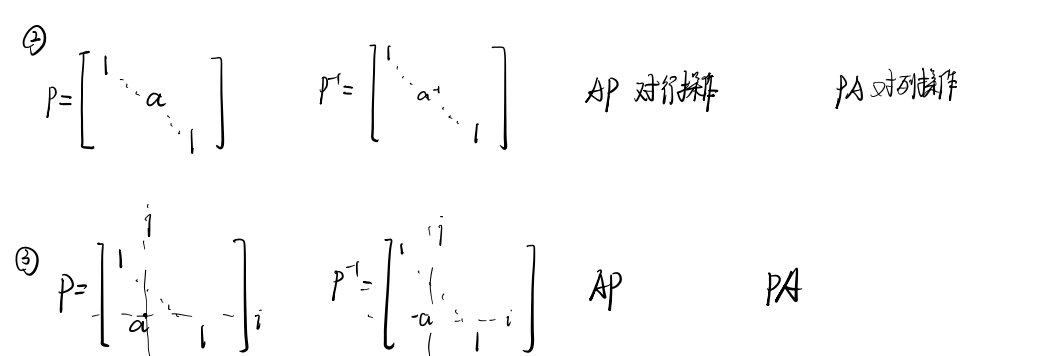 ② P=[1 ⋱ a ⋱ 1] P⁻¹=[1 ⋱ a⁻¹ ⋱ 1] AP 对行操作 PA 对列操作
j j
③ P=[1 ⋱ a 1] i P⁻¹=[1 ⋱ -a 1] i AP PA